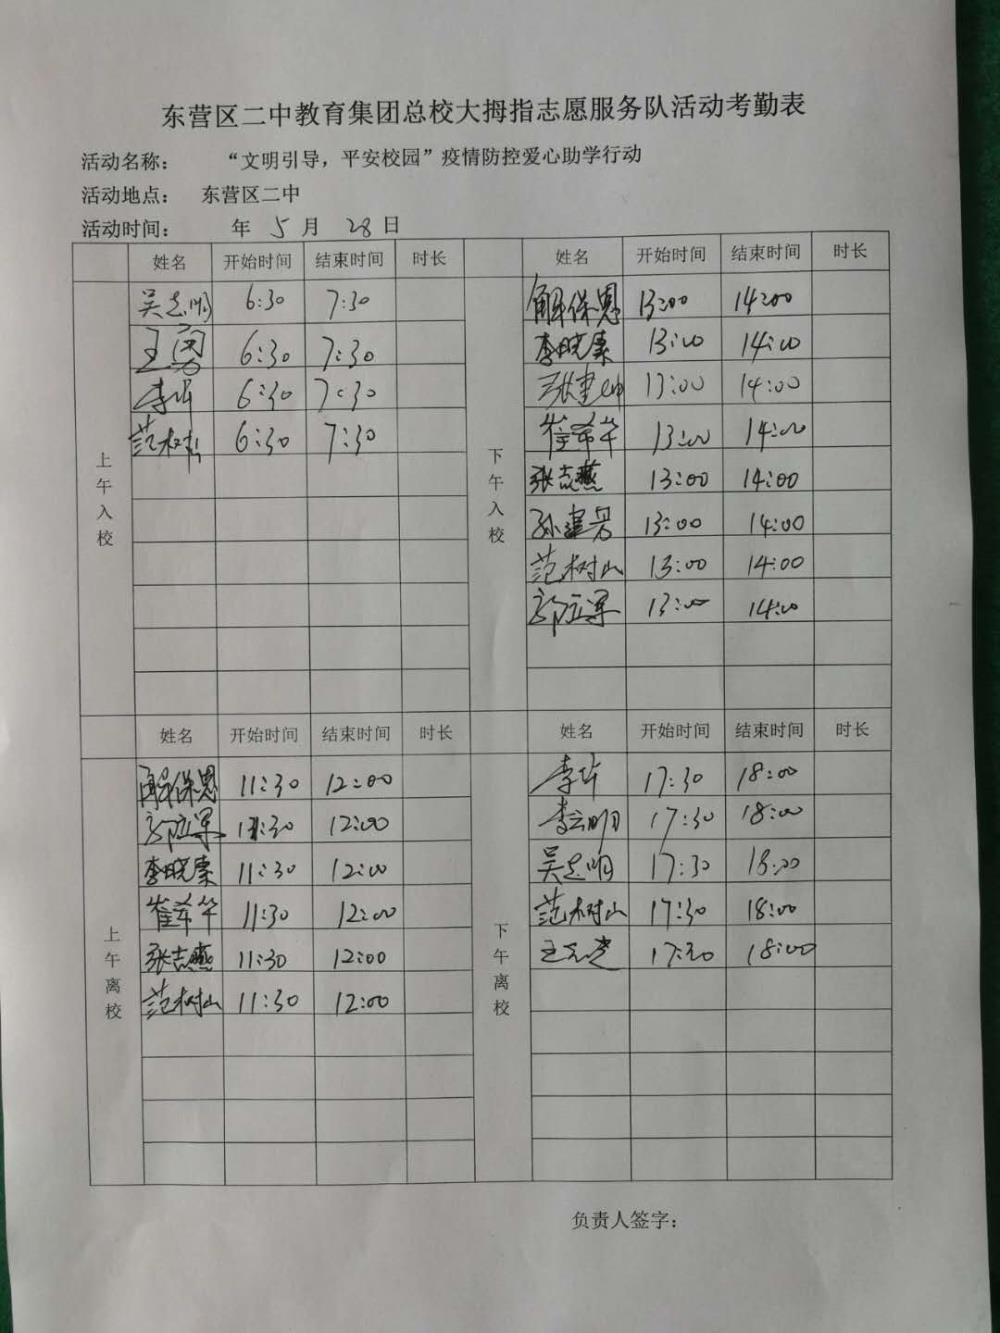 东营区二中教育集团总校大拇指志愿服务队活动考勤表
活动名称: “文明引导，平安校园”疫情防控爱心助学行动
活动地点: 东营区二中
活动时间: 年 5 月 28 日
姓名 开始时间 结束时间 时长 姓名 开始时间 结束时间 时长
上午入校
吴志明 6:30 7:30
王勇 6:30 7:30
李昕 6:30 7:30
范树山 6:30 7:30
下午入校
解保恩 13:00 14:00
李晓寨 13:00 14:00
张建 13:00 14:00
崔希华 13:00 14:00
张志燕 13:00 14:00
孙建男 13:00 14:00
范树山 13:00 14:00
郭立军 13:00 14:00
姓名 开始时间 结束时间 时长 姓名 开始时间 结束时间 时长
上午离校
解保恩 11:30 12:00
郭立军 11:30 12:00
李晓 11:30 12:00
崔希华 11:30 12:00
张志燕 11:30 12:00
范树山 11:30 12:00
下午离校
李昕 17:30 18:00
李云明 17:30 18:00
吴志明 17:30 18:00
范树山 17:30 18:00
王 17:30 18:00
负责人签字: